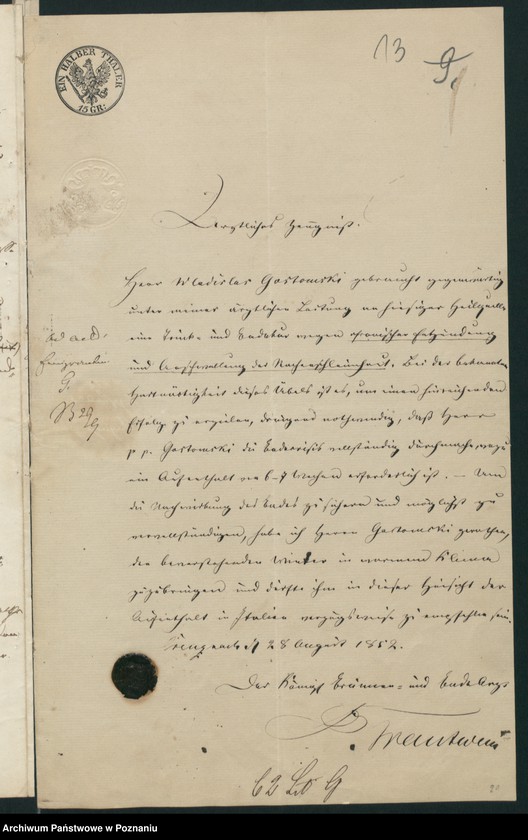 EIN HALBER THALER
15 GR:
13
Aerztliches Zeugniß.
Herr Wladislas Gostomski gebraucht gegenwärtig
unter meiner ärztlichen Leitung an hiesiger Heilquelle
eine Trink- und Badekur wegen chronischer Entzündung
und Anschwellung der Rachenschleimhaut. Bei der bekannten
Hartnäckigkeit dieses Übels ist es, um einen hinreichenden
Erfolg zu erzielen, dringend nothwendig, daß Herr
p. p. Gostomski die Badecrisis vollständig durchmache, wozu
ein Aufenthalt von 6-7 Wochen erforderlich ist. — Um
die Nachwirkung des Bades zu sichern und möglichst zu
vervollständigen, habe ich Herrn Gostomski gerathen,
den bevorstehenden Winter in warmem Klima
zuzubringen und dürfte ihm in dieser Hinsicht der
Aufenthalt in Italien vorzugsweise zu empfehlen sein.
Creuznach d 28 August 1852.
Der Königl Brunnen- und Bade Arzt
Trautwein
ad acta
G.
29/9
62 G
Archiwum Państwowe w Poznaniu